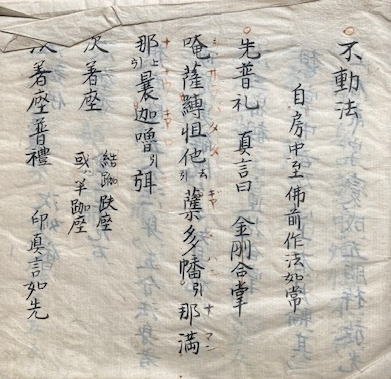 不動法
自房中至佛前作法如常
先普礼 真言曰 金剛合掌
唵薩縛怛他去引蘖多幡引那満
那上引曩迦嚕引弭
次着座 結跏趺座
或半跏座
次着座普禮 印真言如先